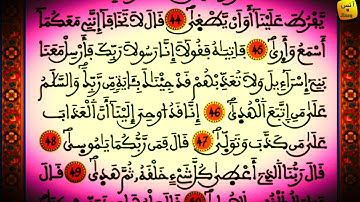 يَّفْرُطَ عَلَيْنَآ أَوْ أَنْ يَّطْغٰى ۝٤٤ قَالَ لَا تَخَافَآ إِنَّنِي مَعَكُمَآ
أَسْمَعُ وَأَرٰى ۝٤٥ فَاتِيٰهُ فَقُولَآ إِنَّا رَسُولَا رَبِّكَ فَأَرْسِلْ مَعَنَا
بَنِيٓ إِسْرَآءِيلَ وَلَا تُعَذِّبْهُمْ قَدْ جِئْنٰكَ بِـَٔايَةٍ مِّن رَّبِّكَ وَالسَّلٰمُ
عَلٰى مَنِ اتَّبَعَ الْهُدٰىٓ ۝٤٦ إِنَّا قَدْ أُوحِيَ إِلَيْنَآ أَنَّ الْعَذَابَ
عَلٰى مَن كَذَّبَ وَتَوَلّٰى ۝٤٧ قَالَ فَمَن رَّبُّكُمَا يٰمُوسٰى ۝٤٨
قَالَ رَبُّنَا الَّذِيٓ أَعْطٰى كُلَّ شَيْءٍ خَلْقَهُ ثُمَّ هَدٰى ۝٤٩ قَالَ